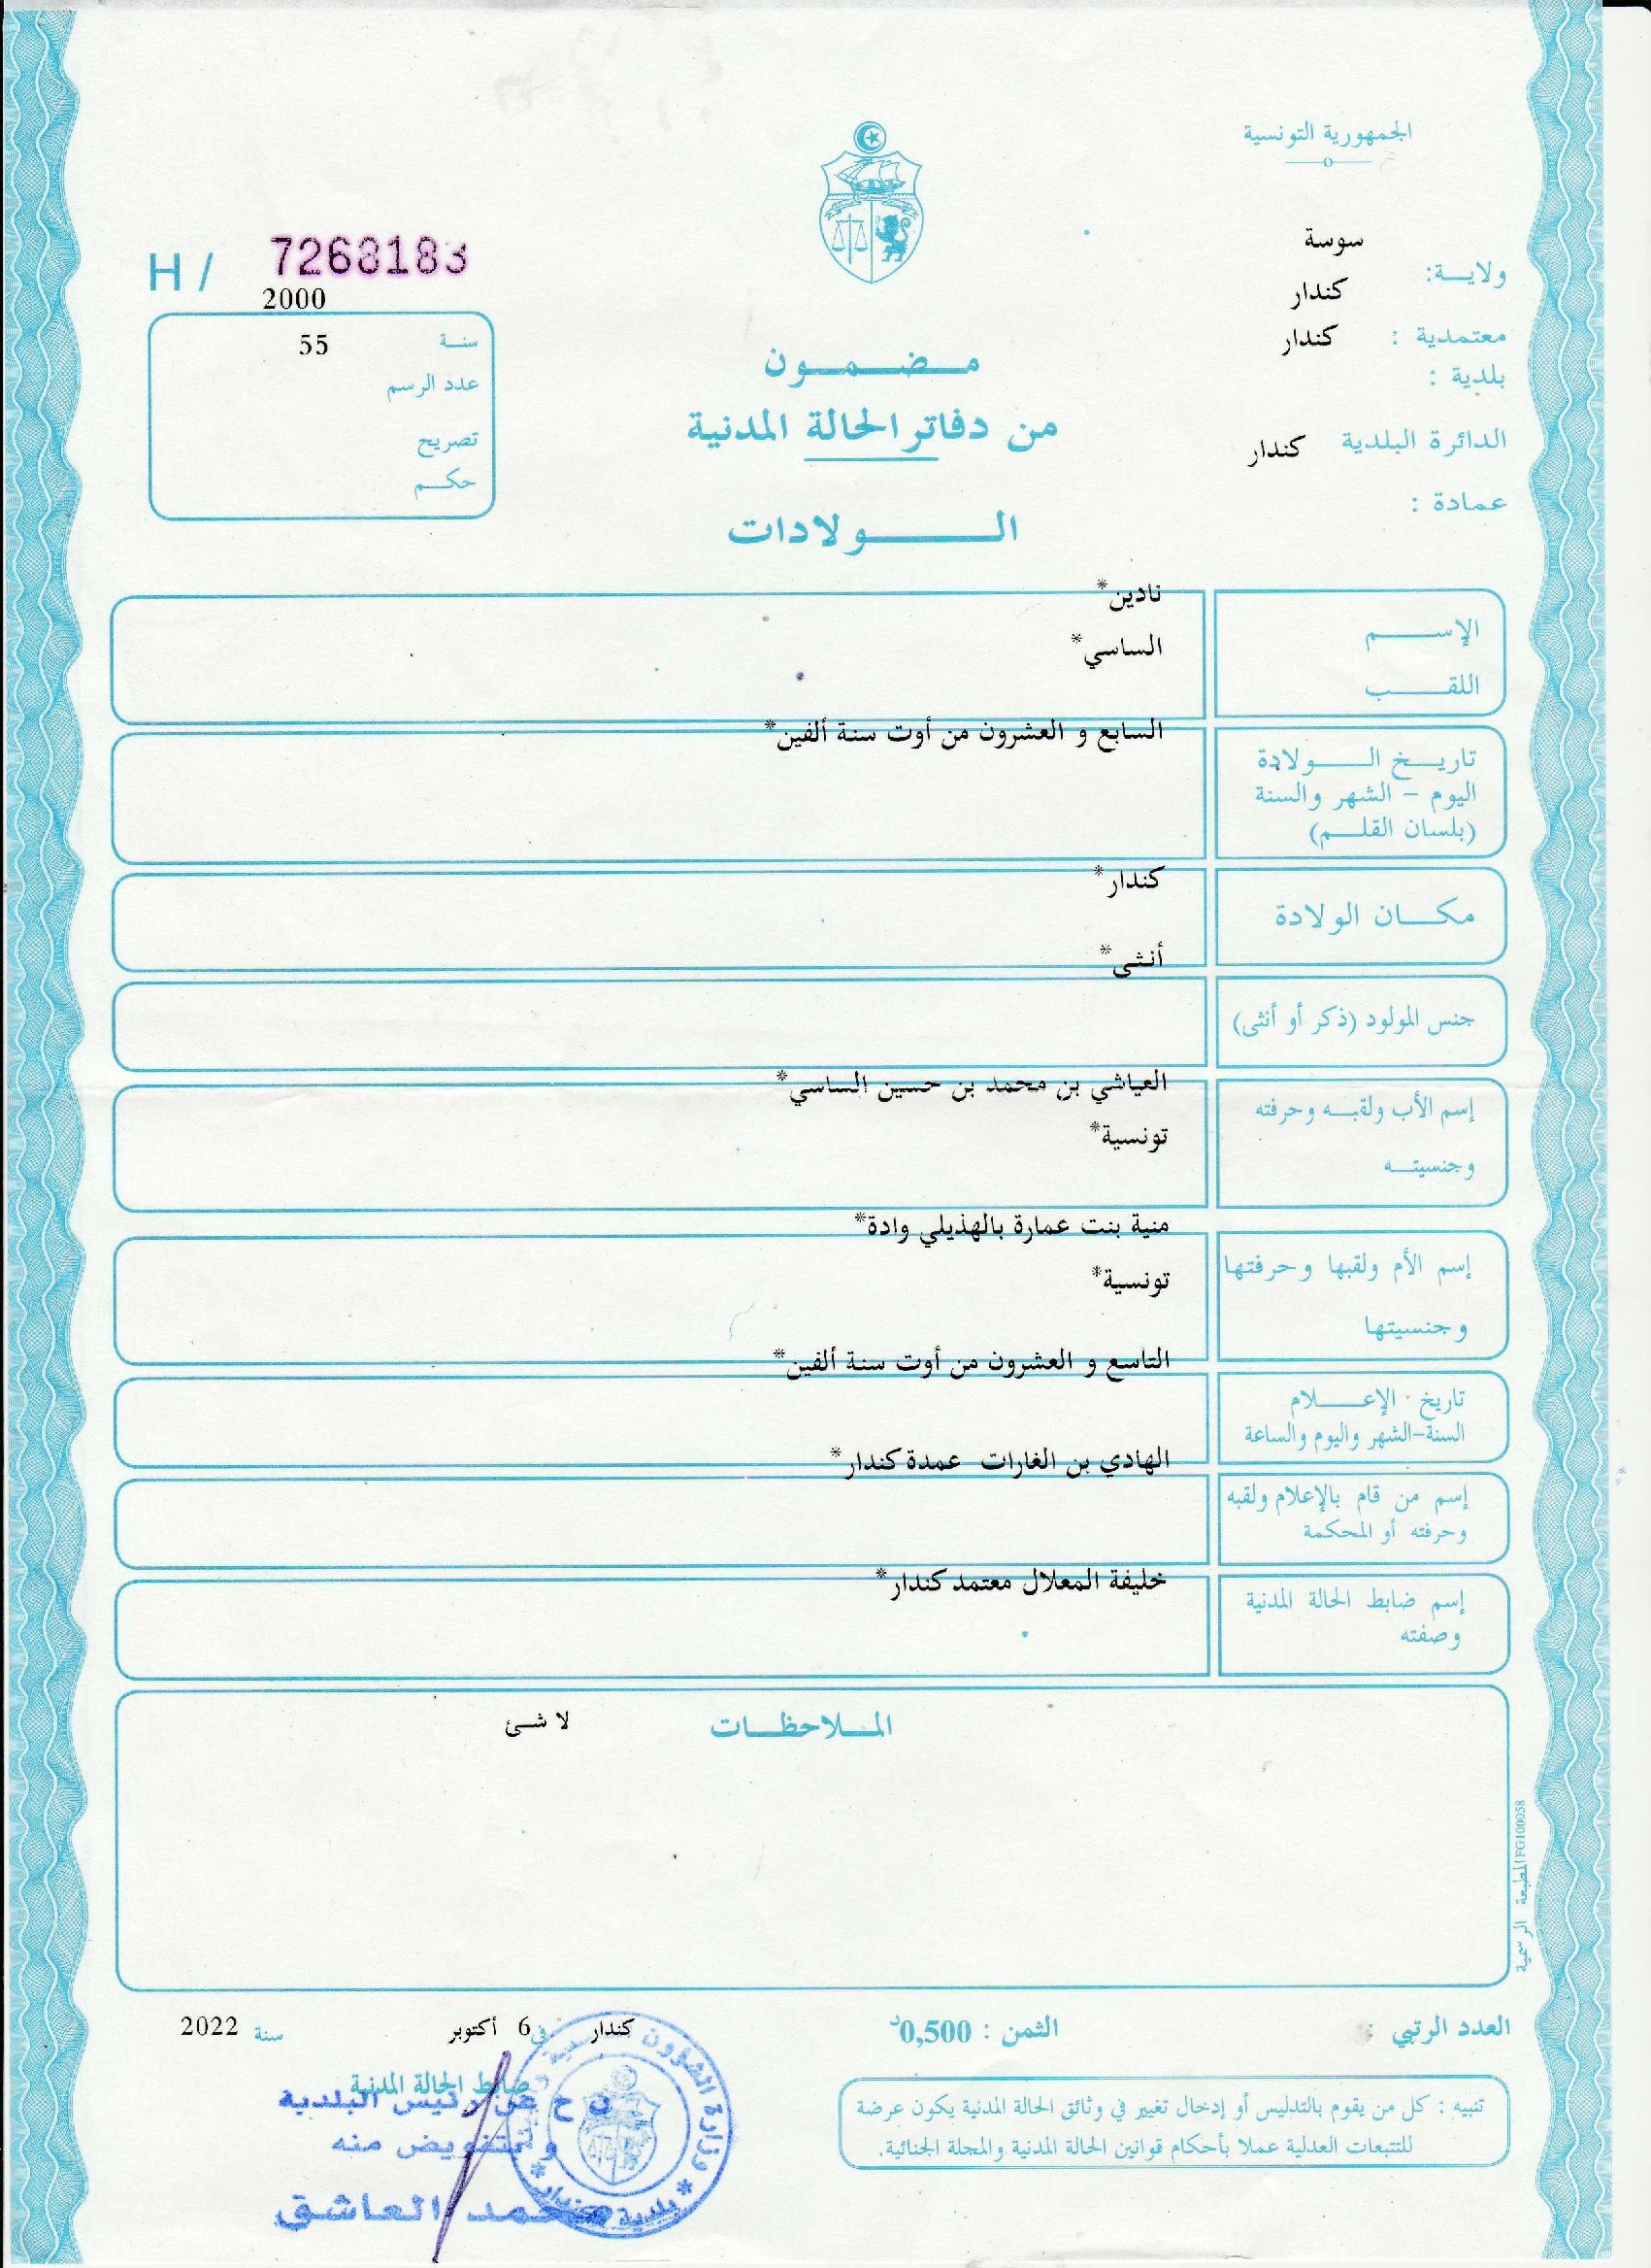 الجمهورية التونسية
سوسة
ولايـــة:
كندار
معتمدية : كندار
بلدية :
الدائرة البلدية كندار
عمادة :
H / 7268183
2000
سنــة 55
عدد الرسم
تصريح
حكــم
مـــضـــمـــون
من دفاتر الحالة المدنية
الـــــولادات
نادين*
الإســــــم
الساسي*
اللقـــــب
السابع و العشرون من أوت سنة ألفين*
تاريـــخ الــــولادة
اليوم – الشهر والسنة
(بلسان القلــم)
كندار*
مكـــان الولادة
أنثى*
جنس المولود (ذكر أو أنثى)
العياشي بن محمد بن حسين الساسي*
إسم الأب ولقبــه وحرفته
تونسية*
وجنسيتــه
منية بنت عمارة بالهذيلي وادة*
إسم الأم ولقبها وحرفتها
تونسية*
وجنسيتها
التاسع و العشرون من أوت سنة ألفين*
تاريخ الإعــــلام
السنة-الشهر واليوم والساعة
الهادي بن الغارات عمدة كندار*
إسم من قام بالإعلام ولقبه
وحرفته أو المحكمة
خليفة المعلال معتمد كندار*
إسم ضابط الحالة المدنية
وصفته
المــلاحظــات
لا شئ
المطبعة الرسمية FG100058
العدد الرتبي :
الثمن : 0,500د
كندار في 6 أكتوبر سنة 2022
ضابط الحالة المدنية
ن ح عن رئيس البلدية
و بتفويض منه
محمد العاشق
وزارة الشؤون
بلدية كندار
تنبيه : كل من يقوم بالتدليس أو إدخال تغيير في وثائق الحالة المدنية يكون عرضة
للتتبعات العدلية عملا بأحكام قوانين الحالة المدنية والمجلة الجنائية.